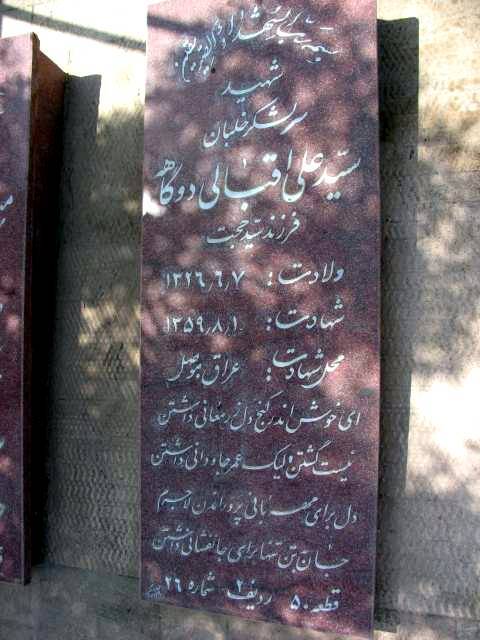 شهید
سرلشکر خلبان
سیّد علی اقبالی دوگاهه
فرزند سیّد حجت
ولادت: ۱۳۲۶٫۶٫۷
شهادت: ۱۳۵۹٫۸٫۱
محل شهادت: عراق موصل
ای خوش اندر کنج دل زر معانی داشتن
نیست گشتن ولیک عمر جاودانی داشتن
دل برای مهربانی پروراندن لاجرم
جان به تن تنها برای جانفشانی داشتن
قطعه ۵۰ ردیف ۲ شماره ۲۶